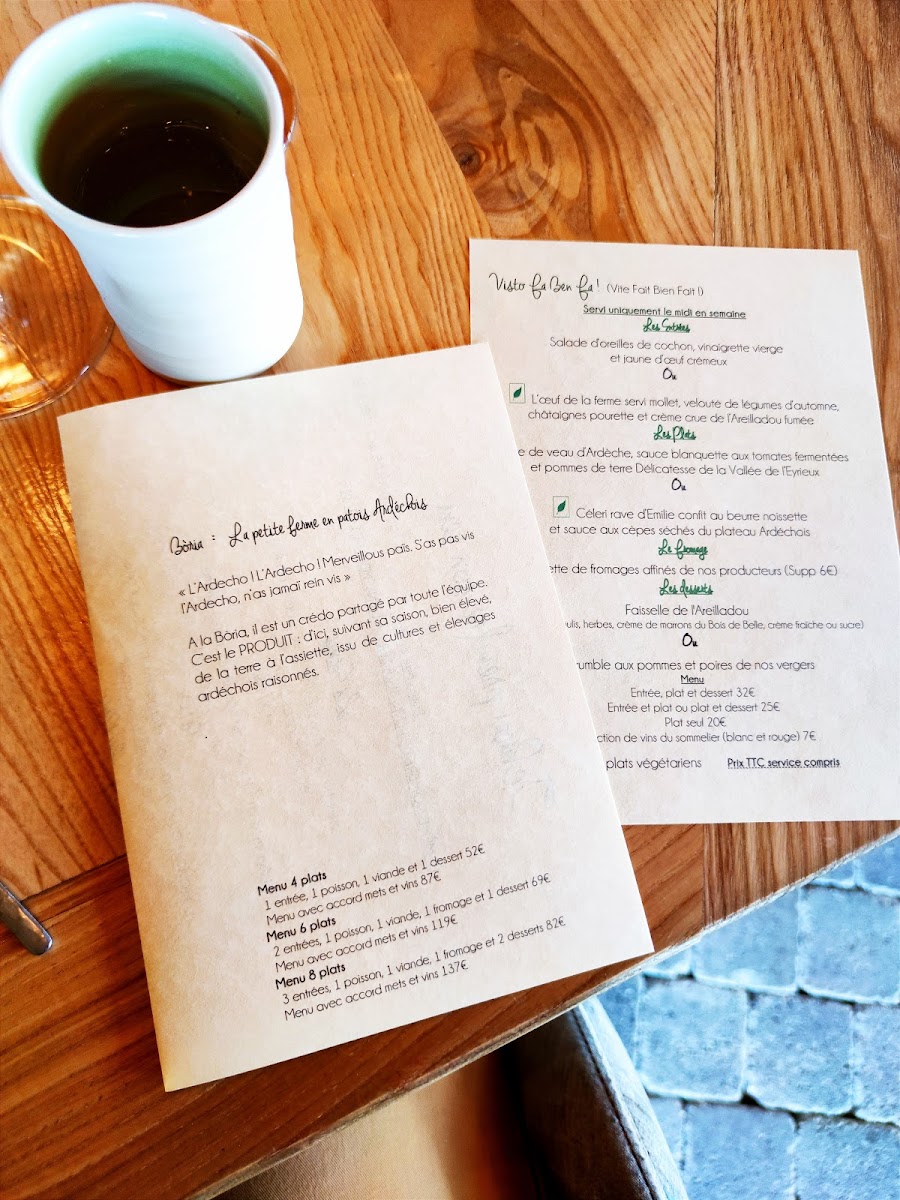 Bòria : La petite ferme en patois Ardéchois
« L'Ardecho ! L'Ardecho ! Merveillous païs. S'as pas vis
l'Ardecho, n'as jamaï rein vis »
A la Bòria, il est un crédo partagé par toute l'équipe.
C'est le PRODUIT : d'ici, suivant sa saison, bien élevé,
de la terre à l'assiette, issu de cultures et élevages
ardéchois raisonnés.
Menu 4 plats
1 entrée, 1 poisson, 1 viande et 1 dessert 52€
Menu avec accord mets et vins 87€
Menu 6 plats
2 entrées, 1 poisson, 1 viande, 1 fromage et 1 dessert 69€
Menu avec accord mets et vins 119€
Menu 8 plats
3 entrées, 1 poisson, 1 viande, 1 fromage et 2 desserts 82€
Menu avec accord mets et vins 137€
Visto fa Ben fa ! (Vite Fait Bien Fait !)
Servi uniquement le midi en semaine
Les Entrées
Salade d'oreilles de cochon, vinaigrette vierge
et jaune d'œuf crémeux
Ou
L'œuf de la ferme servi mollet, velouté de légumes d'automne,
châtaignes pourette et crème crue de l'Areilladou fumée
Les Plats
e de veau d'Ardèche, sauce blanquette aux tomates fermentées
et pommes de terre Délicatesse de la Vallée de l'Eyrieux
Ou
Céleri rave d'Emilie confit au beurre noisette
et sauce aux cèpes séchés du plateau Ardéchois
Le fromage
ette de fromages affinés de nos producteurs (Supp 6€)
Les desserts
Faisselle de l'Areilladou
ulis, herbes, crème de marrons du Bois de Belle, crème fraîche ou sucre)
Ou
rumble aux pommes et poires de nos vergers
Menu
Entrée, plat et dessert 32€
Entrée et plat ou plat et dessert 25€
Plat seul 20€
ction de vins du sommelier (blanc et rouge) 7€
plats végétariens Prix TTC service compris